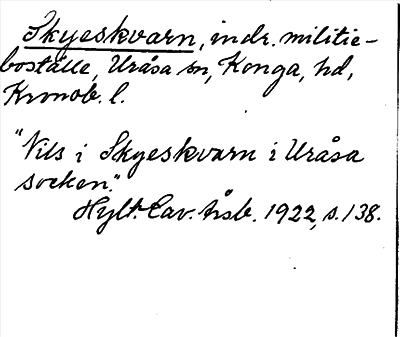 Skyeskvarn, indr. militie-
boställe, Uråsa sn, Konga, hd,
Kronob. l.
"Nils i Skyeskvarn i Uråsa
socken."
Hylt. Cav. årsb. 1922, s. 138.